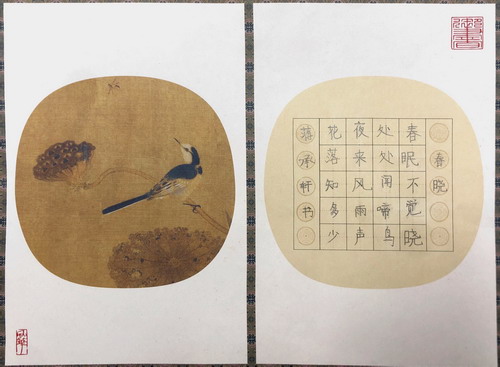 春晓
春眠不觉晓
处处闻啼鸟
夜来风雨声
花落知多少
承轩书